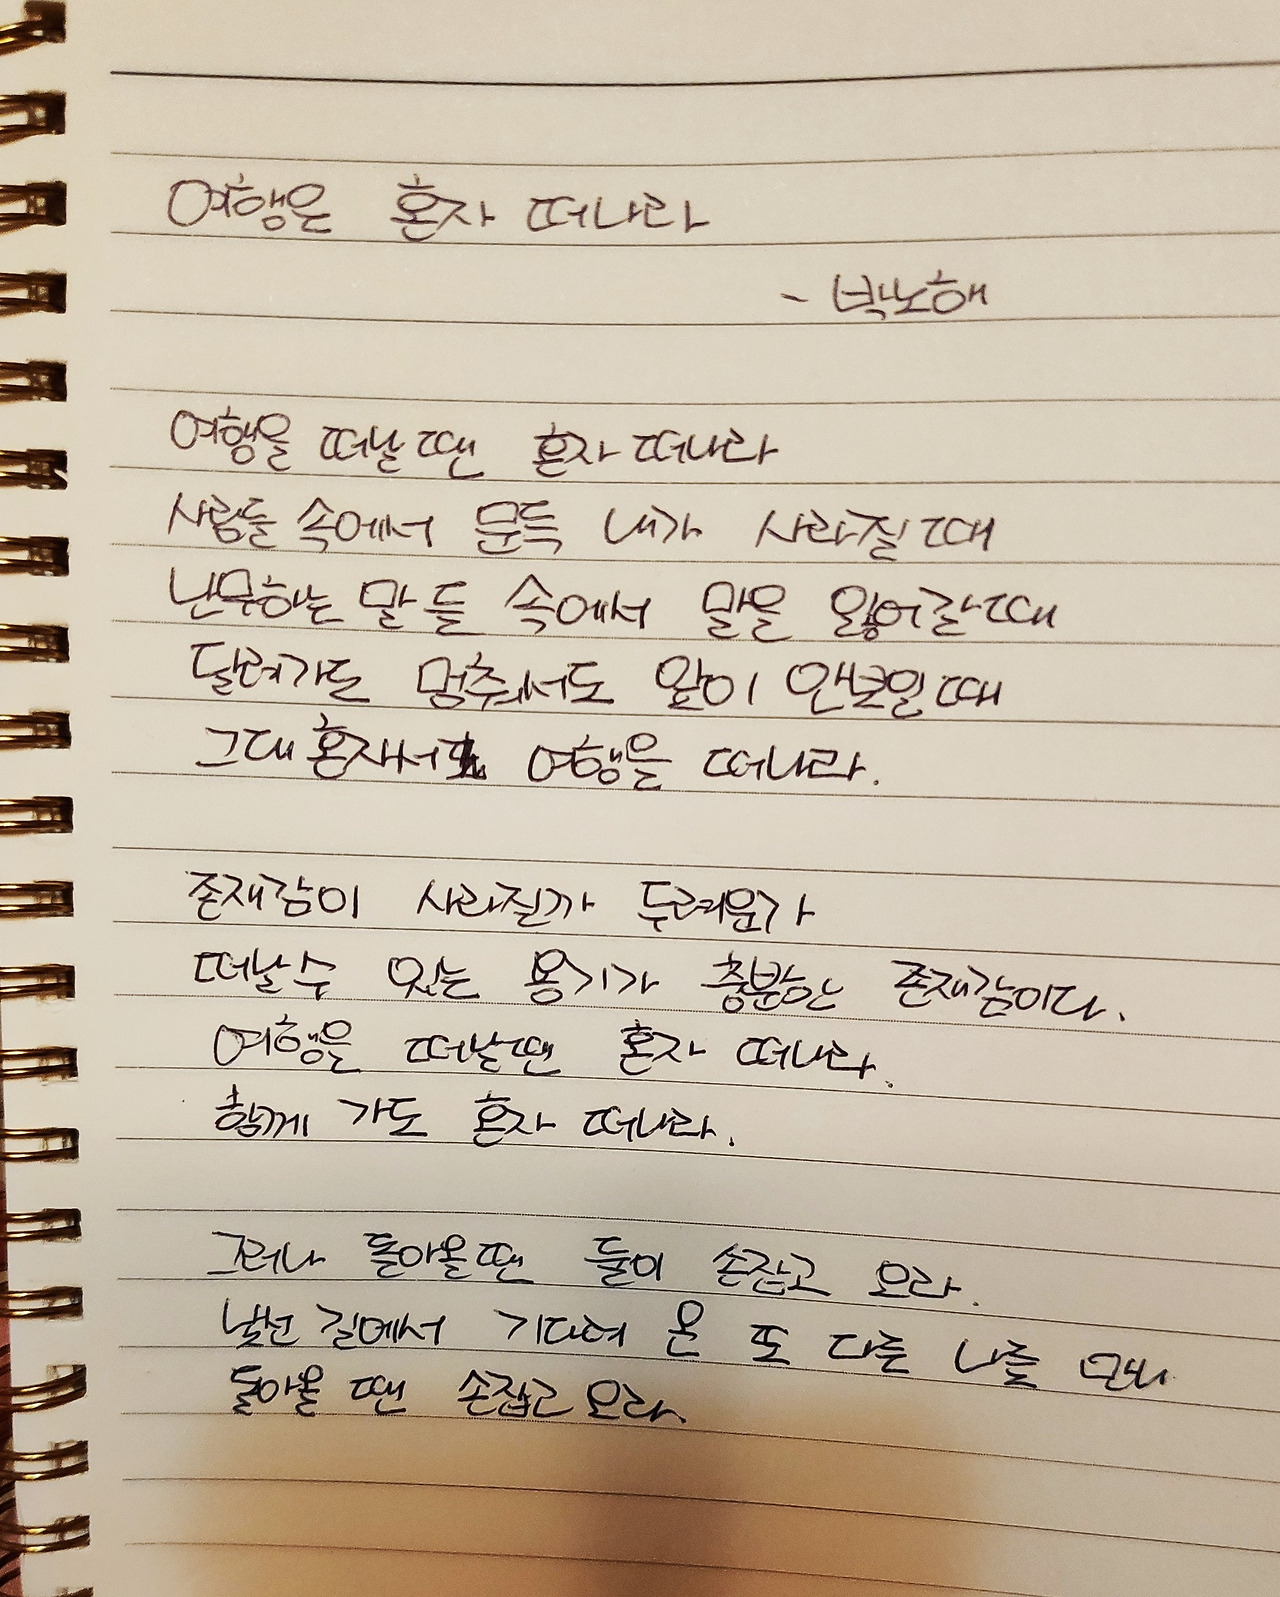 여행은 혼자 떠나라
- 박노해
여행을 떠날 땐 혼자 떠나라
사람들 속에서 문득 내가 사라질 때
난무하는 말들 속에서 말을 잃어갈 때
달려가도 멈춰서도 앞이 안보일 때
그대 혼자서 여행을 떠나라.
존재감이 사라질까 두려운가
떠날 수 있는 용기가 충분한 존재감이다.
여행을 떠날 땐 혼자 떠나라.
함께 가도 혼자 떠나라.
그러나 돌아올 땐 둘이 손잡고 오라.
낯선 길에서 기다려 온 또 다른 나를 만나
돌아올 땐 손잡고 오라.